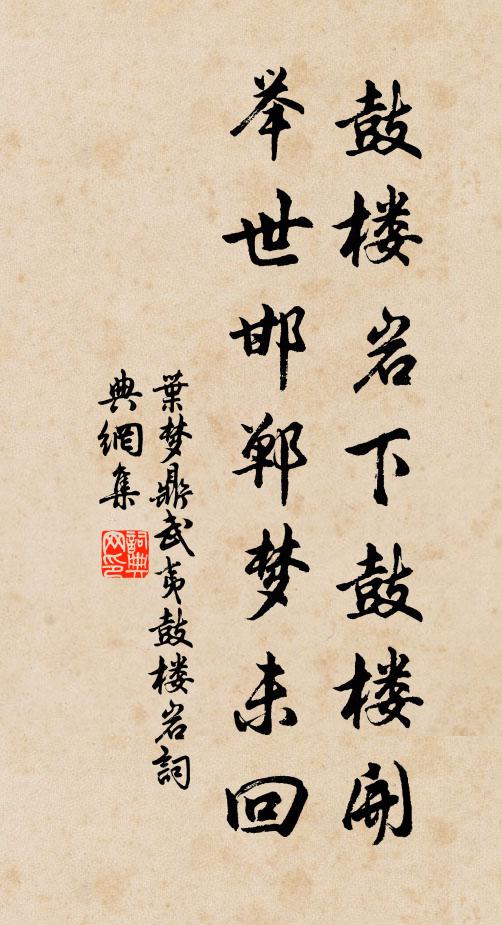 鼓楼岩下鼓楼开
举世邯郸梦未回
葉梦鼎武夷鼓楼岩詞
典網集
詞典
网印